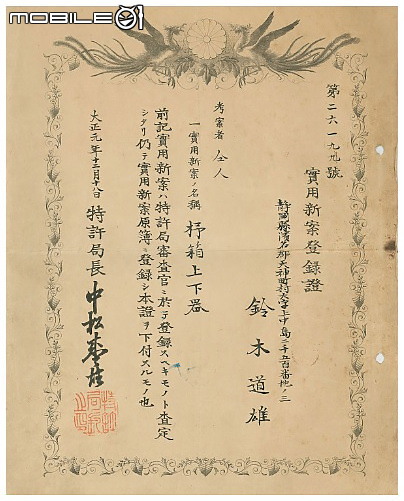 MOBILE01
第二六一九九號
實用新案登錄證
靜岡縣濱名郡天神町村大字上中島二千五百番地ノ三
鈴木道雄
考案者 仝人
一 實用新案ノ名稱 杼箱上下器
前記實用新案ハ特許局審査官ニ於テ登録スヘキモノト査定
シタリ仍テ實用新案原簿ニ登録シ本證ヲ下付スルモノ也
大正元年十二月十八日
特許局長 中松